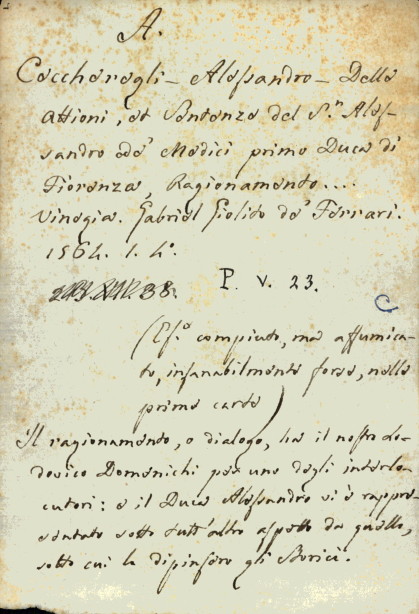 A.
Coccheregli – Alessandro – Delle
attioni, et Sentenze del S.ʳ Ales-
sandro de' Medici primo Duca di
Fiorenza, Ragionamento....
Vinegia. Gabriel Giolito de' Ferrari.
1564. 1. 4.º
38. P. V. 23.
C
(Es.º compiuto, ma affumica-
to, insanabilmente forse, nelle
prime carte)
Il ragionamento, o dialogo, ha il nostro Lo-
dovico Domenichi per uno degli interlo-
cutori: e il Duca Alessandro vi è rappre-
sentato sotto tutt'altro aspetto da quello,
sotto cui lo dipinsero gli Storici.